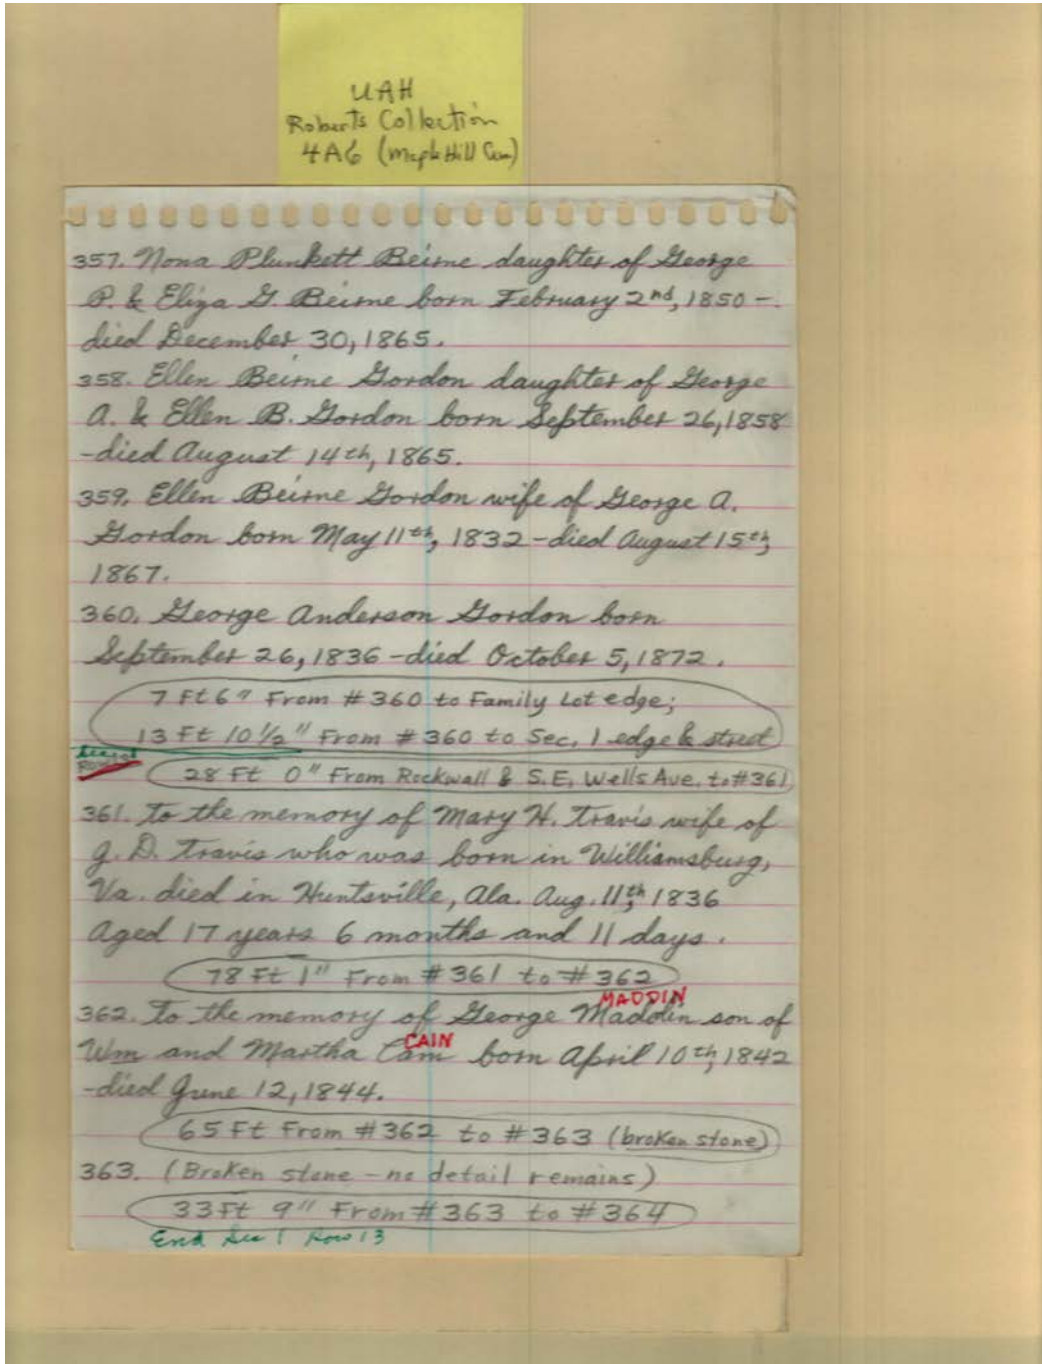 UAH
Roberts Collection
4A6 (Maple Hill Cem)
357. Nona Plunkett Beirne daughter of George
P. & Eliza G. Beirne born February 2nd, 1850 -
died December 30, 1865.
358. Ellen Beirne Gordon daughter of George
A. & Ellen B. Gordon born September 26, 1858
-died August 14th, 1865.
359. Ellen Beirne Gordon wife of George A.
Gordon born May 11th, 1832 - died August 15th,
1867.
360. George Anderson Gordon born
September 26, 1836 - died October 5, 1872.
7 Ft 6" From #360 to Family Lot edge;
13 Ft 10 1/2" From #360 to Sec. 1 edge & street
28 Ft 0" From Rockwall & S.E. Wells Ave. to #361
361. To the memory of Mary H. Travis wife of
J. D. Travis who was born in Williamsburg,
Va. died in Huntsville, Ala. Aug. 11th, 1836
Aged 17 years 6 months and 11 days.
78 Ft 1" From #361 to #362
MADDIN
362. To the memory of George Maddin son of
CAIN
Wm and Martha Cain born April 10th, 1842
-died June 12, 1844.
65 Ft From #362 to #363 (broken stone)
363. (Broken stone - no detail remains)
33 Ft 9" From #363 to #364
End Sec 1 Row 13